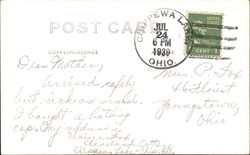 POST CARD
CHIPPEWA LAKE
JUL
24
6 PM
1939
OHIO
1 CENT 1
CORRESPONDENCE
Dear Mother,
Arrived safely
but sick as usual.
I bought a bathing
cap. My address
Cleveland Cottage
Chippewa Lake, Ohio
Mrs. P. Fox
46 Forest
Youngstown,
Ohio